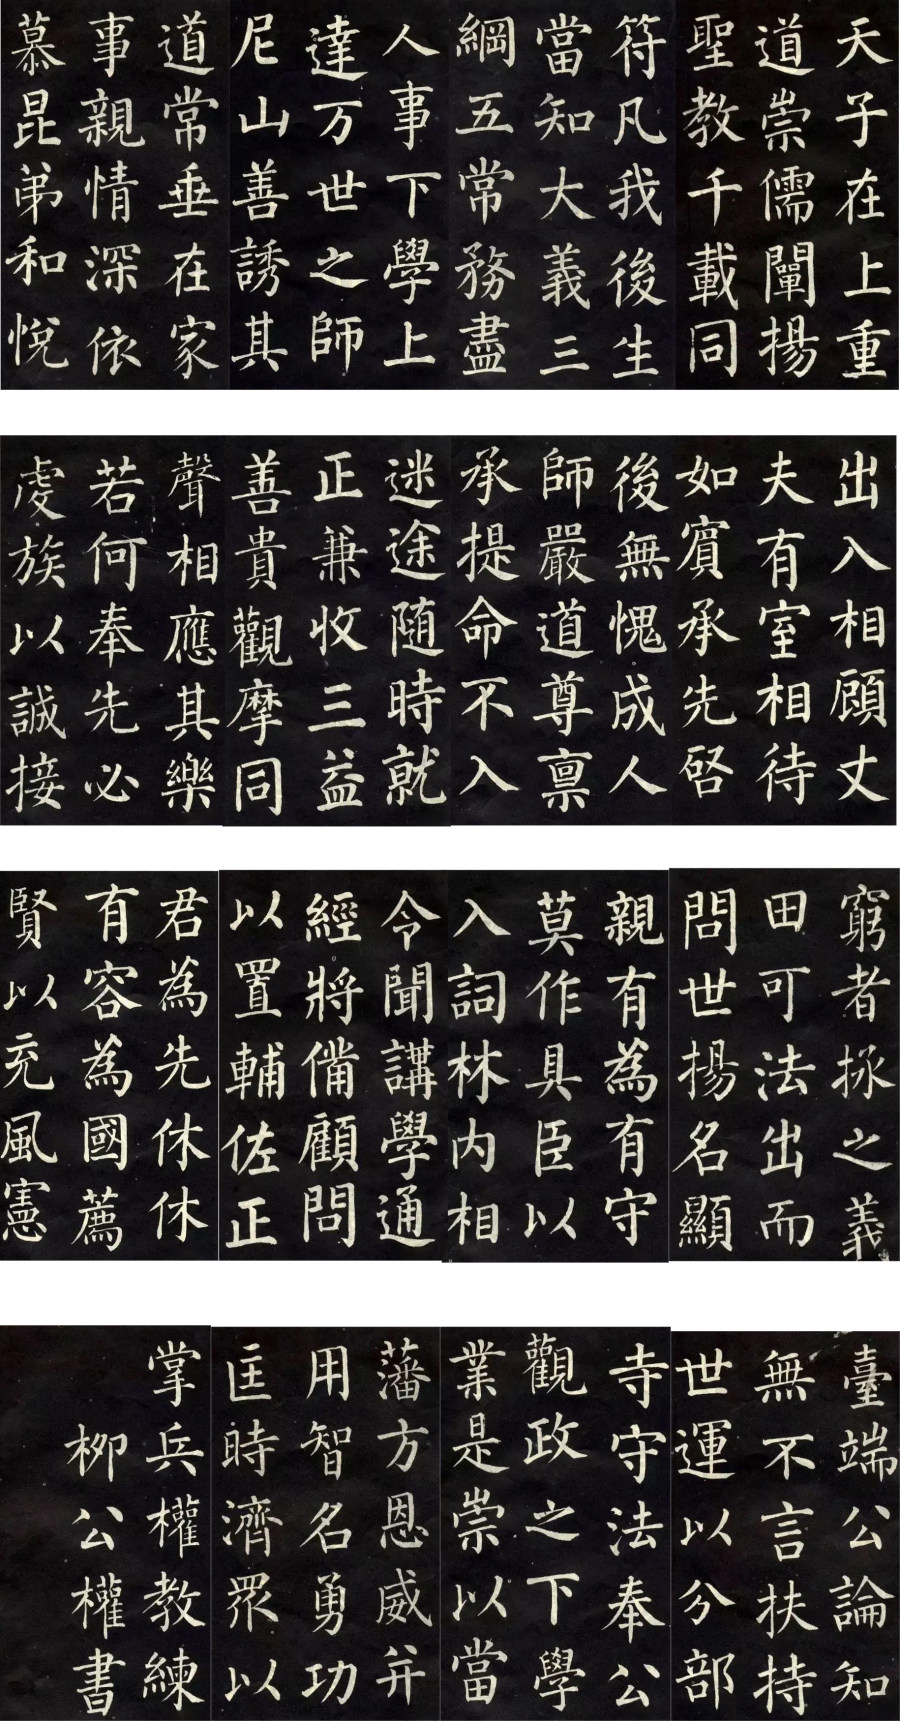 天子在上重
道崇儒闡揚
聖教千載同
符凡我後生
當知大義三
綱五常務盡
人事下學上
達万世之師
尼山善誘其
道常垂在家
事親情深依
慕昆弟和悅
出入相顧丈
夫有室相待
如賓承先啓
後無愧成人
師嚴道尊禀
承提命不入
迷途随時就
正兼收三益
善貴觀摩同
聲相應其樂
若何奉先必
虔族以誠接
窮者拯之義
田可法出而
問世揚名顯
親有為有守
莫作具臣以
入詞林内相
令聞講學通
經將備顧問
以置輔佐正
君為先休休
有容為國薦
賢以充風憲
臺端公論知
無不言扶持
世運以分部
寺守法奉公
觀政之下學
業是崇以當
藩方恩威并
用智名勇功
匡時濟眾以
掌兵權教練
柳公權書